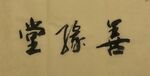 善緣堂